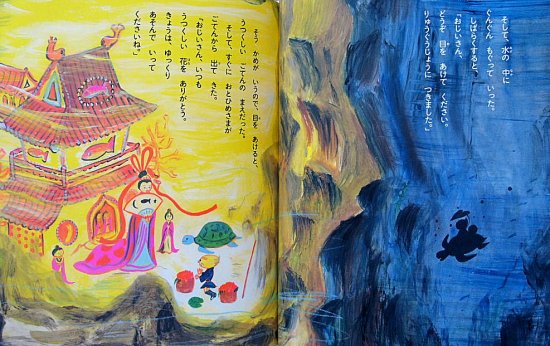 そして、水の 中に
ぐんぐん もぐって いった。
しばらくすると、
「おじいさん、
どうぞ 目を あけて ください。
りゅうぐうじょうに つきました。」
そう かめが いうので、目を あけると、
うつくしい ごてんの まえだった。
そして、すぐに おとひめさまが
ごてんから 出て きた。
「おじいさん、いつも
うつくしい 花を ありがとう。
きょうは、ゆっくり
あそんで いって
くださいね。」